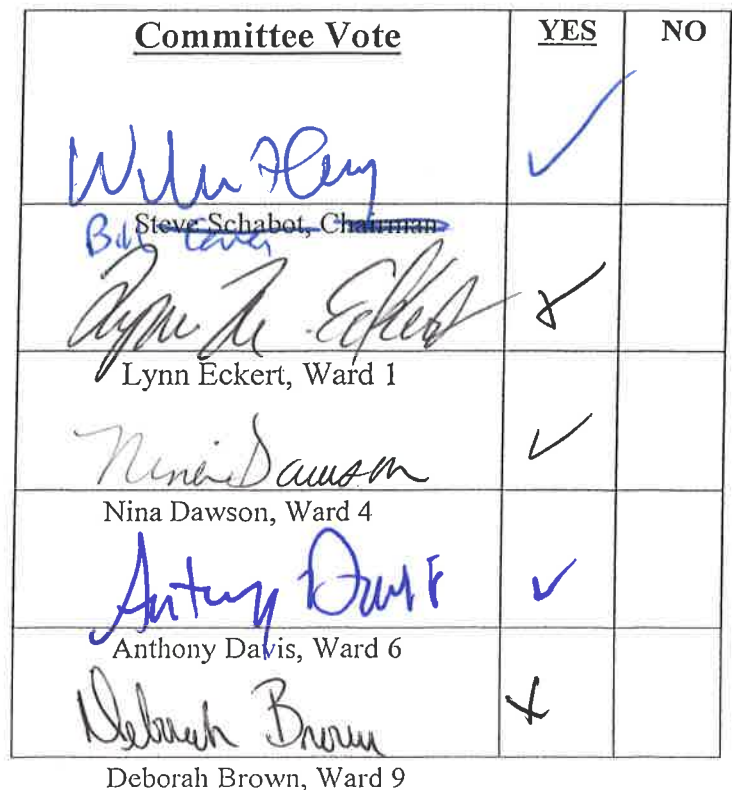 Committee Vote YES NO
Steve Schabot, Chairman
Bill
Lynn Eckert
Lynn Eckert, Ward 1
Nina Dawson
Nina Dawson, Ward 4
Anthony Davis
Anthony Davis, Ward 6
Deborah Brown
Deborah Brown, Ward 9